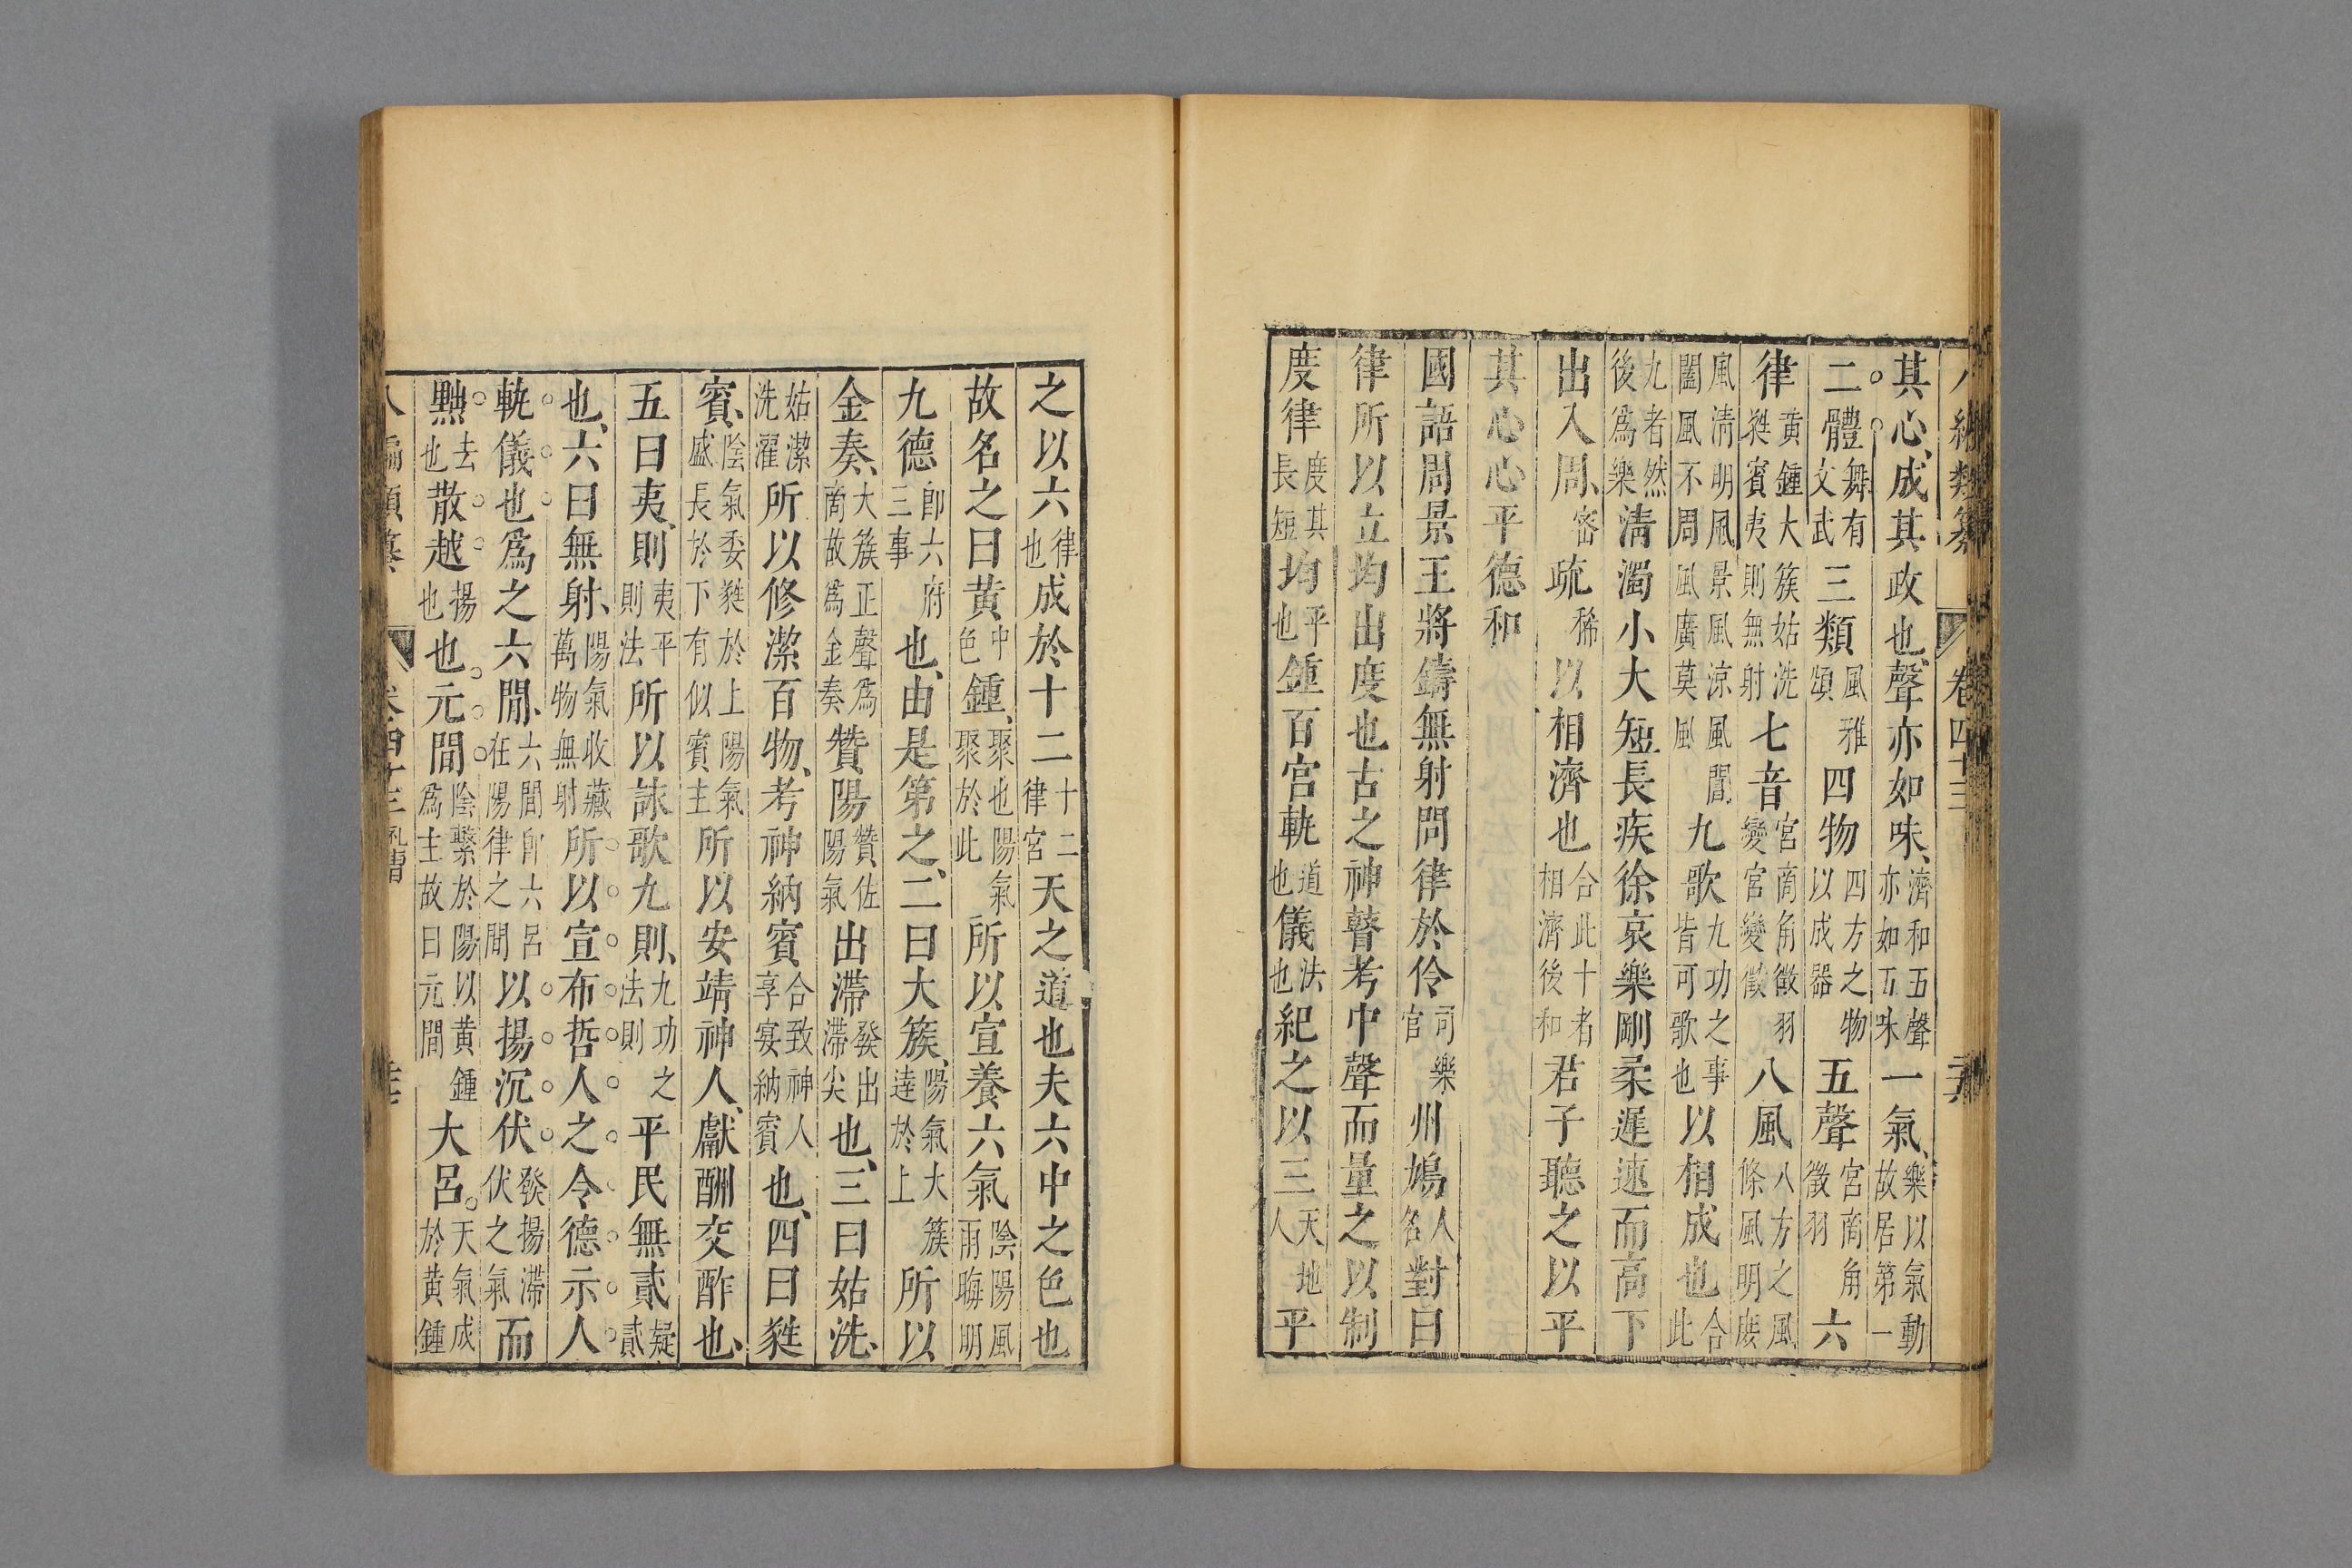 八編類纂 卷四十三 二六
其心成其政也聲亦如味濟和五聲亦如五味一氣樂以氣動故居第一
二體舞有文武三類風雅頌四物四方之物以成器五聲宮商角徵羽六
律黃鍾大簇姑洗蕤賓夷則無射七音宮商角徵羽變宮變徵八風八方之風條風明庶
風清明風景風涼風閶闔風不周風廣莫風九歌九功之事皆可歌也以相成也合此
九者然後爲樂清濁小大短長疾徐哀樂剛柔遲速而高下
出入周密疏稀以相濟也合此十者相濟後和君子聽之以平
其心心平德和
國語周景王將鑄無射問律於伶司樂官州鳩人名對曰
律所以立均出度也古之神瞽考中聲而量之以制
度律度其長短均平也鍾百官軌道也儀法也紀之以三天地人平
之以六律也成於十二十二律宮天之道也夫六中之色也
故名之曰黃中色鍾聚也陽氣聚於此所以宣養六氣陰陽風雨晦明
九德卽六府三事也由是第之二曰大簇陽氣大簇達於上所以
金奏大簇正聲爲商故爲金奏贊陽贊佐陽氣出滯發出滯尖也三曰姑洗
姑潔洗濯所以修潔百物考神納賓合致神人享宴納賓也四曰蕤
賓陰氣委蕤於上陽氣盛長於下有似賓主所以安靖神人獻酬交酢也
五曰夷則夷平則法所以詠歌九則九功之法則平民無貳疑貳
也六曰無射陽氣收藏萬物無射所以宣布哲人之令德示人
軌儀也爲之六間六間卽六呂在陽律之間以揚沉伏發揚滯伏之氣而
黜去也散越揚也也元間陰繫於陽以黃鍾爲主故曰元間大呂天氣成於黃鍾
八編類纂 卷四十三 禮曹